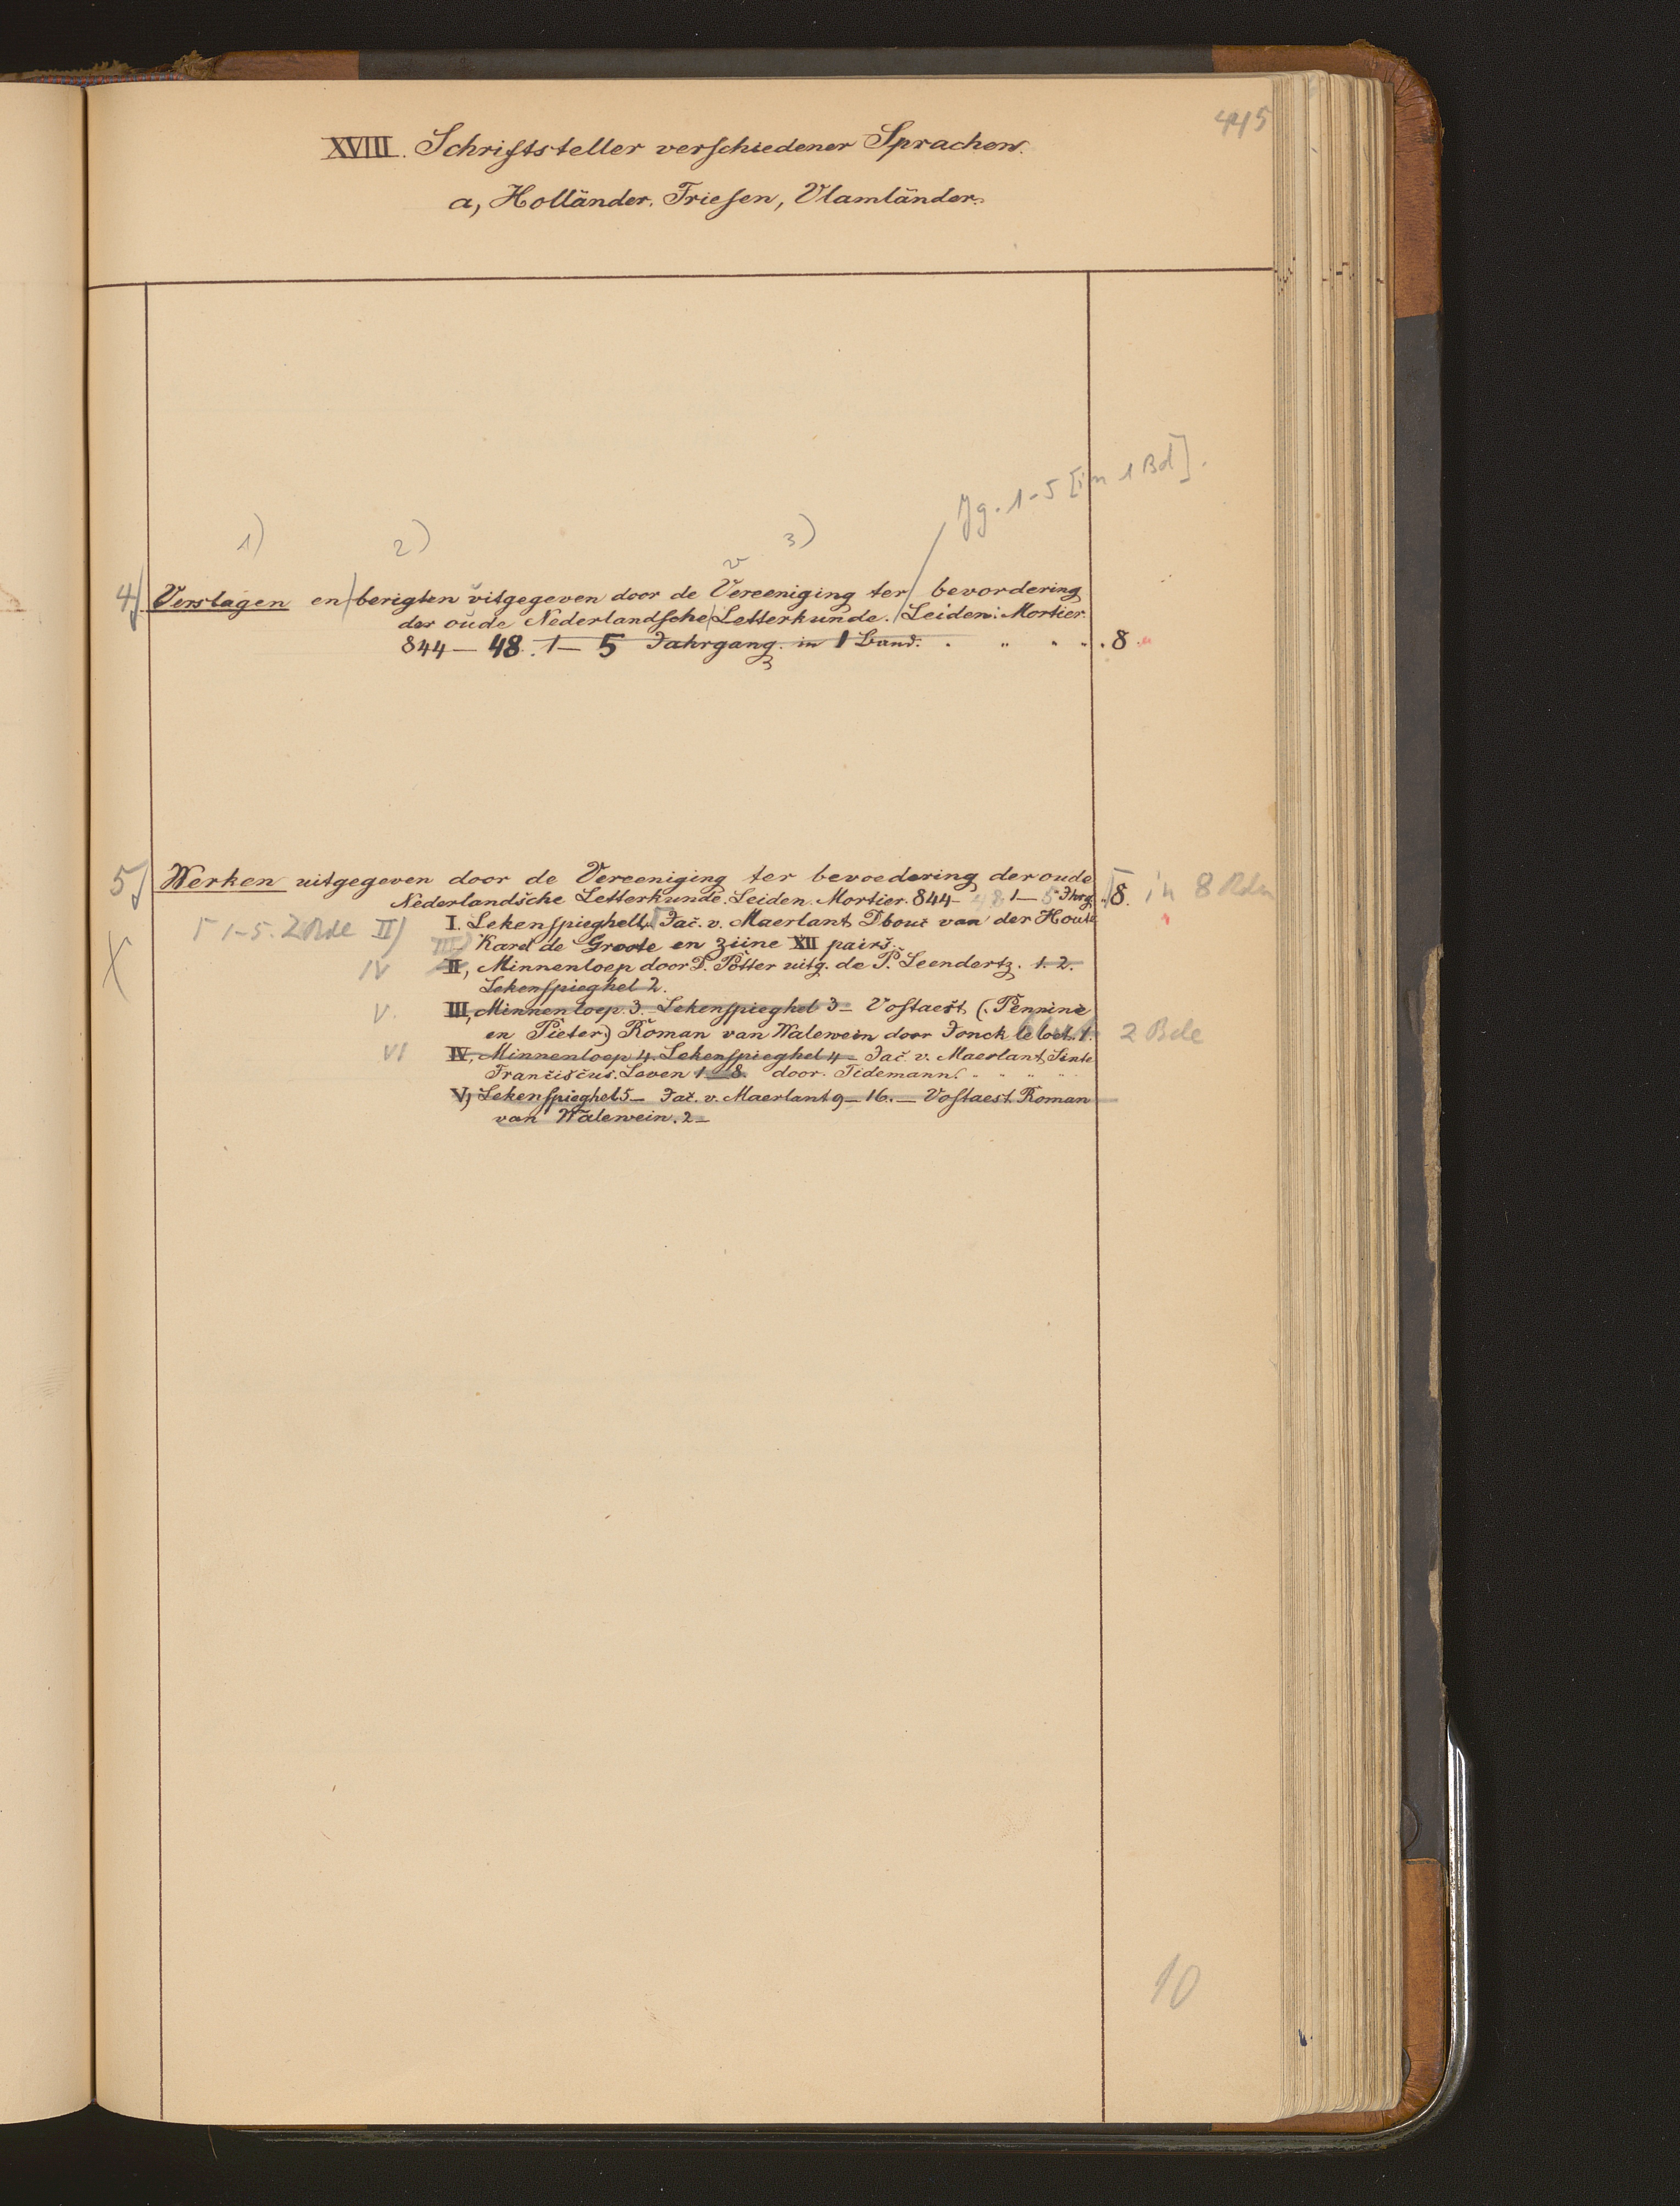 445
XVIII. Schriftsteller verschiedener Sprachen.
a, Holländer. Friesen, Vlamländer.
Jg. 1-5 [in 1 Bd].
1) 2) 3)
v
4) Verslagen en berigten uitgegeven door de Vereeniging ter bevordering
der oude Nederlandsche Letterkunde. Leiden: Mortier.
844 — 48. 1 — 5 Jahrgang. in 1 Band. . " . " . 8.
5) Werken uitgegeven door de Vereeniging ter bevoedering der oude
Nederlandsche Letterkunde. Leiden. Mortier. 844- 48 1 — 5 Jhrg. 8. in 8 Bdn
1-5. 2 Bde II) I. Lekenspieghel 1, Jac. v. Maerlant, Dbouc van der Houte
III) Karel de Groote en zijne XII pairs.
IV II, Minnenloep door D. Potter uitg. de P. Leendertz. 1. 2.
Lekenspieghel 2.
V. III, Minnenloep 3. Lekenspieghel 3 — Vostaest (Pennine
en Pieter) Roman van Walewein door Jonckbloet. 1. 2 Bde
VI IV, Minnenloep 4. Lekenspieghel 4 — Jac. v. Maerlant, Sinte
Franciscus. Leven 1 — 8. door. Tidemann. " " " "
V, Lekenspieghel 5 — Jac. v. Maerlant 9 — 16. — Vostaest Roman
van Walewein. 2 —
10